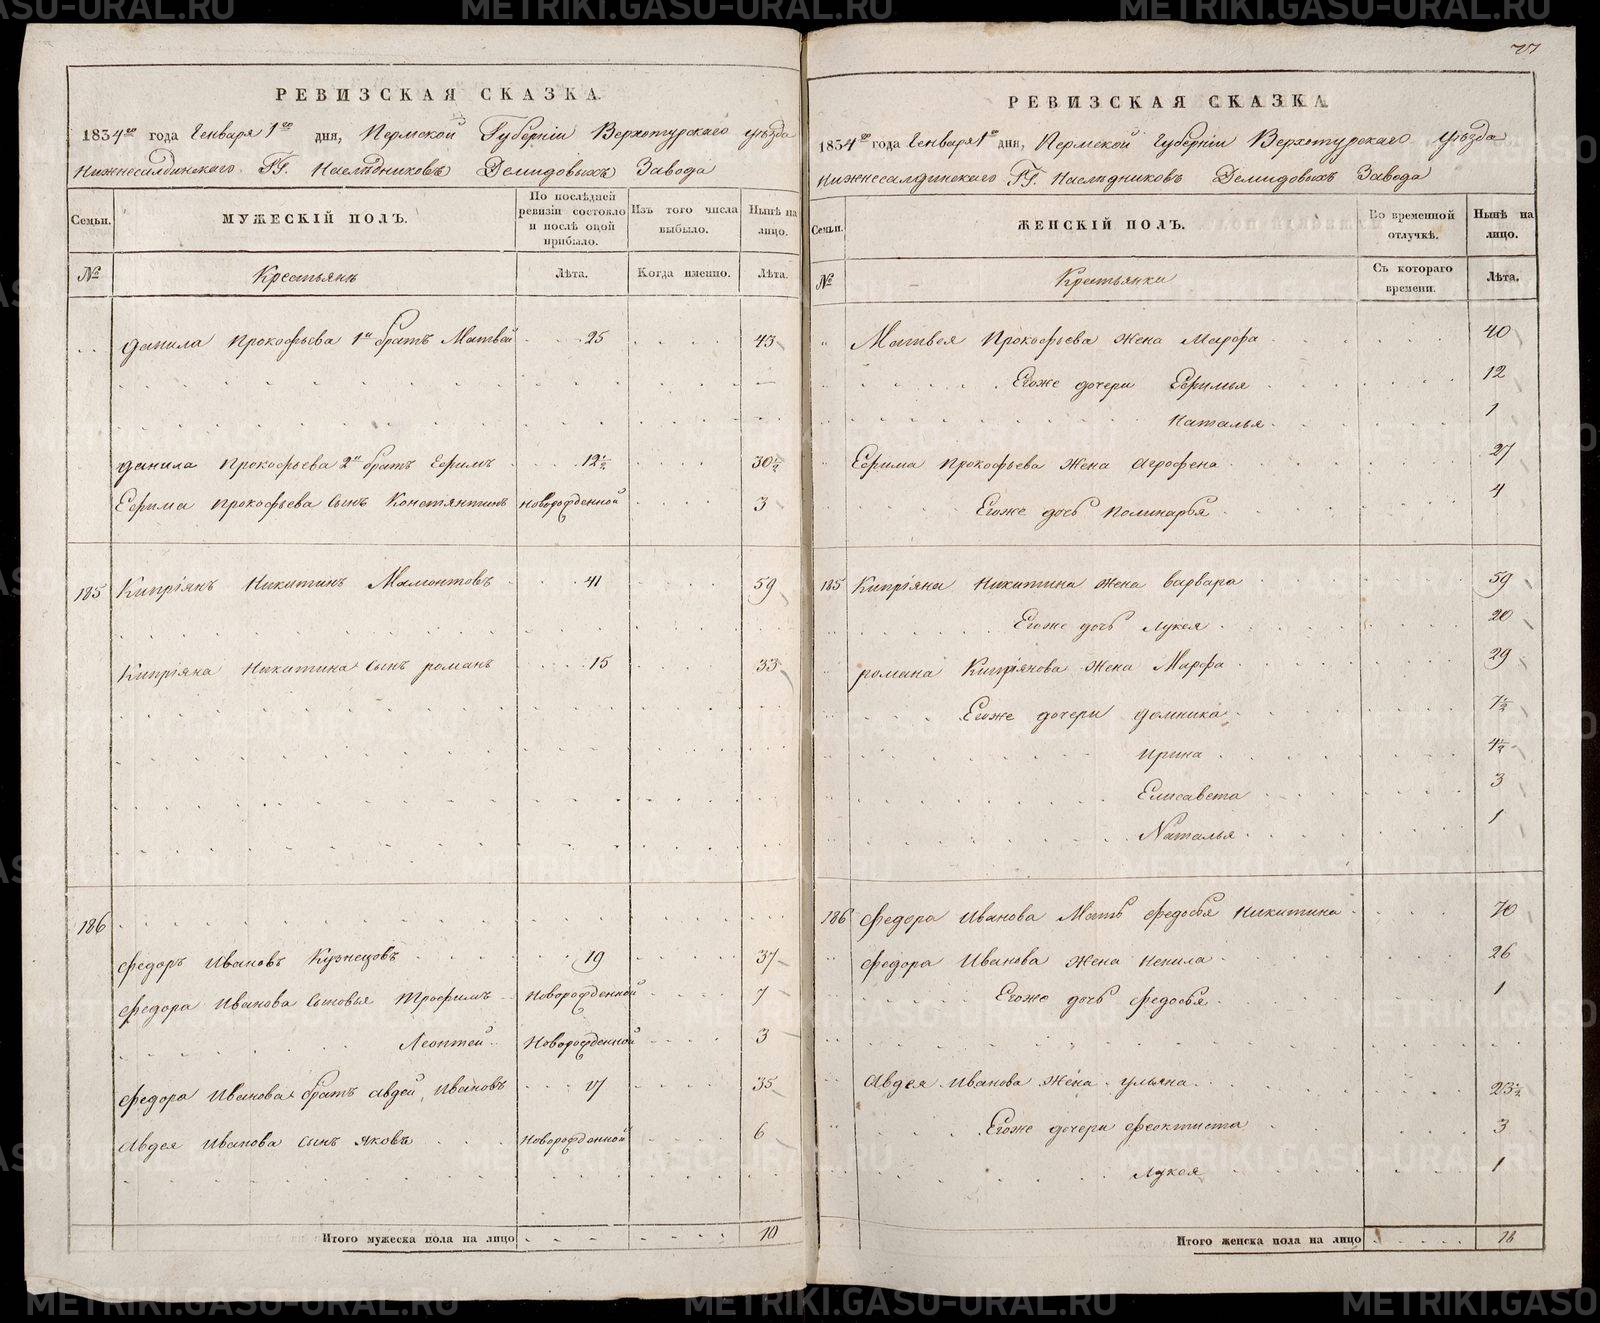 METRIKI.GASU-URAL.RU
77
РЕВИЗСКАЯ СКАЗКА.
1834го года Генваря 1го дня, Пермской Губерніи Верхотурскаго уѣзда
Нижнесалдинскаго ГГ. Наслѣдниковъ Демидовыхъ Завода
Семьи. МУЖЕСКІЙ ПОЛЪ. По послѣдней ревизіи состояло и послѣ оной прибыло. Изъ того числа выбыло. Нынѣ на лицо.
№ Крестьянъ Лѣта. Когда именно. Лѣта.
Данила Прокофьева 1й братъ Матвей 25 43
Данила Прокофьева 2й братъ Ефимъ 12½ 30½
Ефима Прокофьева сынъ Константинъ новорожденной 3
185 Кипріянъ Никитинъ Мамонтовъ 41 59
Кипріяна Никитина сынъ романъ 15 33
186
Федоръ Ивановъ Кузнецовъ 19 37
Федора Иванова сыновья Трофимъ новорожденной 7
Леонтей новорожденной 3
Федора Иванова братъ авдей Ивановъ 17 35
Авдея Иванова сынъ яковъ новорожденной 6
Итого мужеска пола на лицо 10
РЕВИЗСКАЯ СКАЗКА
1834го года Генваря 1го дня, Пермской Губерніи Верхотурскаго уѣзда
Нижнесалдинскаго ГГ. Наслѣдниковъ Демидовыхъ Завода
Семьи. ЖЕНСКІЙ ПОЛЪ. Во временной отлучкѣ. Нынѣ на лицо.
№ Крестьянки Съ котораго времени. Лѣта.
Матвея Прокофьева жена Марфа 40
Егоже дочери Ефимья 12
Наталья 1
Ефима Прокофьева жена Агрофена 27
Егоже дочь Полинарья 4
185 Кипріяна Никитина жена варвара 59
Егоже дочь Лукея 20
романа Кипріянова жена Марфа 29
Егоже дочери домника 7½
Ирина 4½
Елисавета 3
Наталья 1
186 Федора Иванова Мать федосья Никитина 70
Федора Иванова жена Ненила 26
Егоже дочь федосья 1
Авдея Иванова жена ульяна 23½
Егоже дочери феоктиста 3
Лукея 1
Итого женска пола на лицо 18